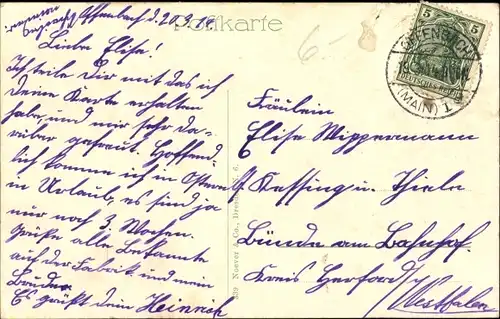 Offenbach d. 20.3.16
Postkarte
Liebe Elise!
Ich teile Dir mit das ich
Deine Karte erhalten
habe, und mir sehr da-
rüber gefreut. Hoffend-
lich komme ich in Ostern
in Urlaub, es sind ja
nur noch 3 Wochen.
Grüße alle Bekannte
auf der Fabrik und mein
Bruder
Es grüßt dein Heinrich
Fräulein
Elise Wippermann
b. Kessing u. Thiele
Bünde am Bahnhof.
Kreis Herford
Westfalen
5 5
DEUTSCHES REICH
OFFENBACH
(MAIN) 1